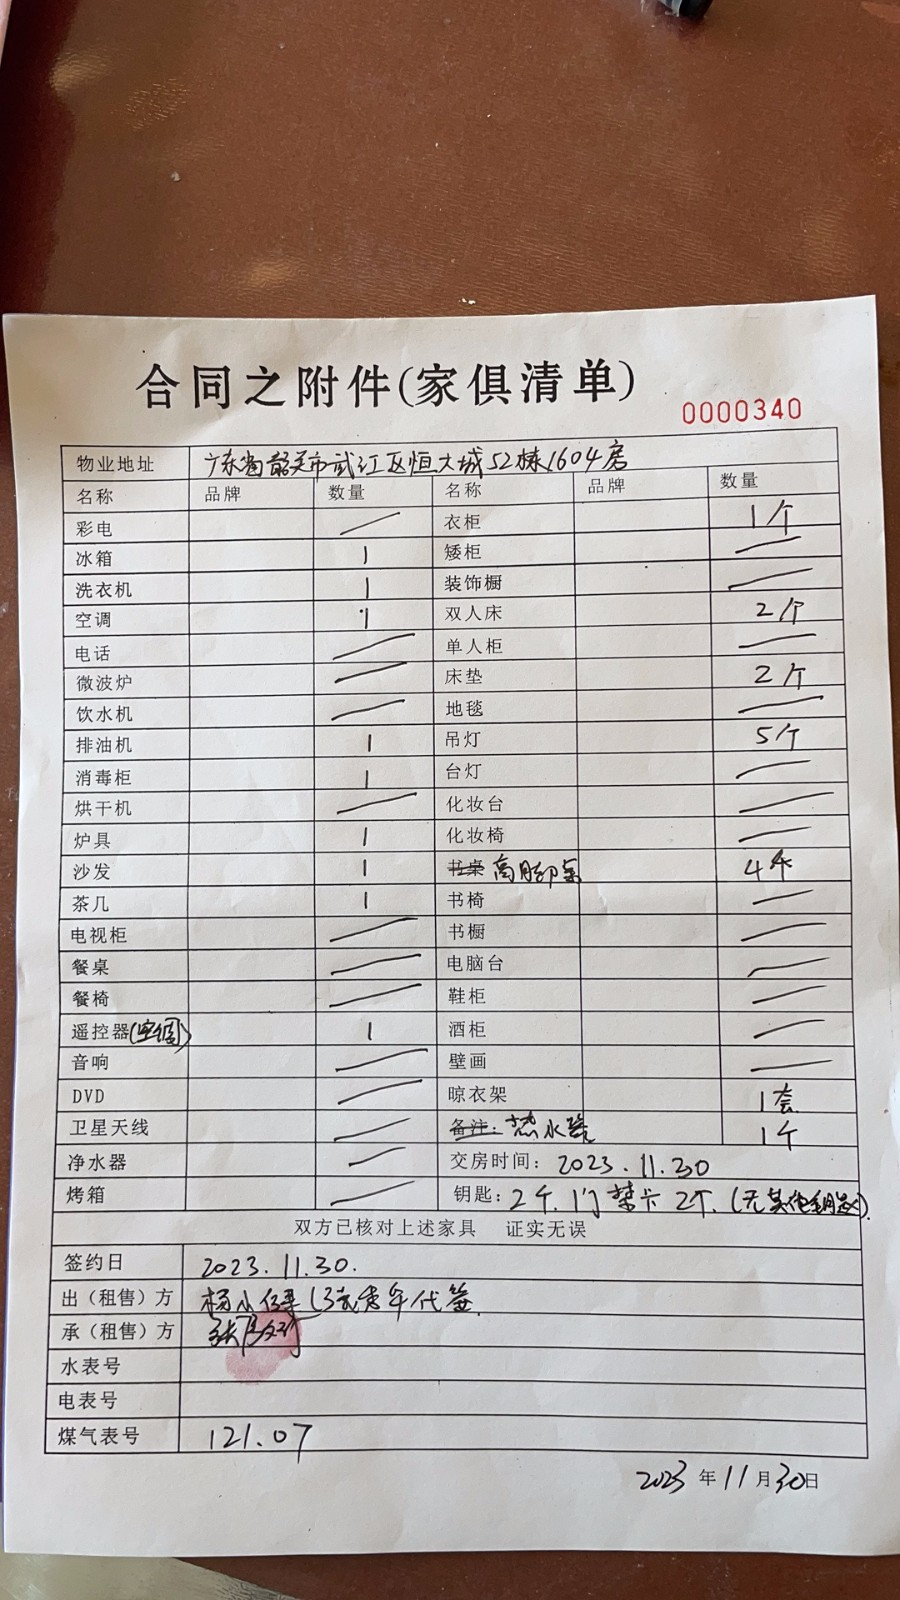 合同之附件(家俱清单)
0000340
物业地址 广东省韶关市武江区恒大城52栋1604房
名称 品牌 数量 名称 品牌 数量
彩电 衣柜 1个
冰箱 1 矮柜
洗衣机 1 装饰橱
空调 1 双人床 2个
电话 单人柜
微波炉 床垫 2个
饮水机 地毯
排油机 1 吊灯 5个
消毒柜 1 台灯
烘干机 化妆台
炉具 1 化妆椅
沙发 1 书桌 高脚桌 4个
茶几 1 书椅
电视柜 书橱
餐桌 电脑台
餐椅 鞋柜
遥控器(空调) 1 酒柜
音响 壁画
DVD 晾衣架 1套
卫星天线 备注: 热水器 1个
净水器 交房时间: 2023.11.30
烤箱 钥匙: 2个.门禁卡2个.(无其他钥匙).
双方已核对上述家具 证实无误
签约日 2023.11.30.
出（租售）方 杨小 年代签
承（租售）方 张
水表号
电表号
煤气表号 121.07
2023年11月30日